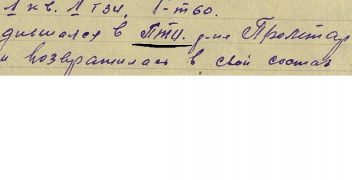 1 кв. 1 т34, 1-т60.
дившаяся в ПТЦ. р-не Пролетар
и возвратилась в свой состав